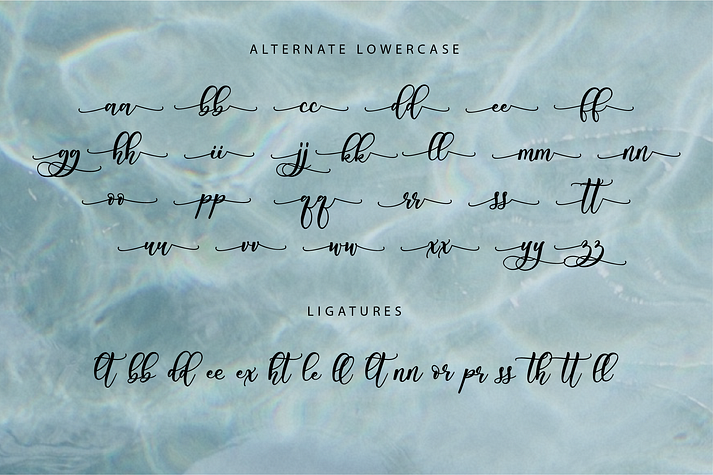 ALTERNATE LOWERCASE
aa bb cc dd ee ff
gg hh ii jj kk ll mm nn
oo pp qq rr ss tt
uu vv ww xx yy zz
LIGATURES
lt bb dd ee ex ht le ll lt nn or pr ss th tt ll